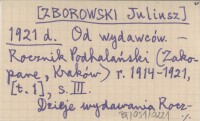 [ZBOROWSKI Juliusz]
1921 d. Od wydawców. —
Rocznik Podhalański (Zako-
pane, Kraków) r. 1914-1921,
[t. 1], s. III.
Dzieje wydawania Rocz-